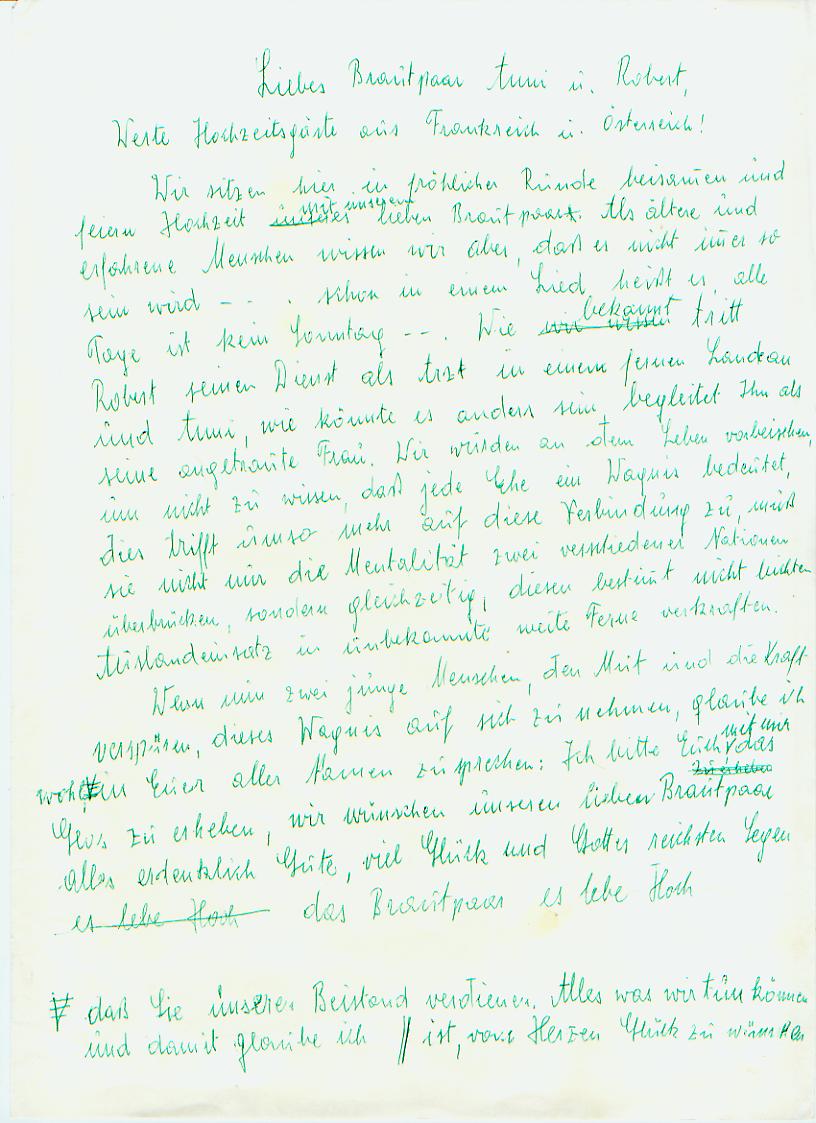 Liebes Brautpaar Anni u. Robert,
Werte Hochzeitsgäste aus Frankreich u. Österreich!
Wir sitzen hier in fröhlicher Runde beisamen und
mit unserem
feiern Hochzeit unseres lieben Brautpaar. Als ältere und
erfahrene Menschen wissen wir aber, daß es nicht imer so
sein wird - - . schon in einem Lied heißt es, alle
bekannt
Tage ist kein Sonntag - - . Wie wir wissen tritt
Robert seinen Dienst als Arzt in einem fernen Land an
und Anni, wie könnte es anders sein, begleitet Ihn als
seine angetraute Frau. Wir würden an dem Leben vorbeisehen,
um nicht zu wissen, daß jede Ehe ein Wagnis bedeutet,
dies trifft umso mehr auf diese Verbindung zu, muß
sie nicht nur die Mentalität zwei verschiedener Nationen
überbrücken, sondern gleichzeitig, diesen bestimt nicht leichten
Auslandeinsatz in unbekannte weite Ferne verkraften.
Wenn nun zwei junge Menschen, den Mut und die Kraft
verspüren, dieses Wagnis auf sich zu nehmen, glaube ich
mit mir
wohl in Euer aller Namen zu sprechen: Ich bitte Euch das
zu erheben
Glas zu erheben, wir wünschen unseren lieben Brautpaar
alles erdenklich Gute, viel Glück und Gottes reichsten Segen
es lebe Hoch das Brautpaar es lebe Hoch
daß Sie unseren Beistand verdienen. Alles was wir tun können
und damit glaube ich // ist, vom Herzen Glück zu wünschen